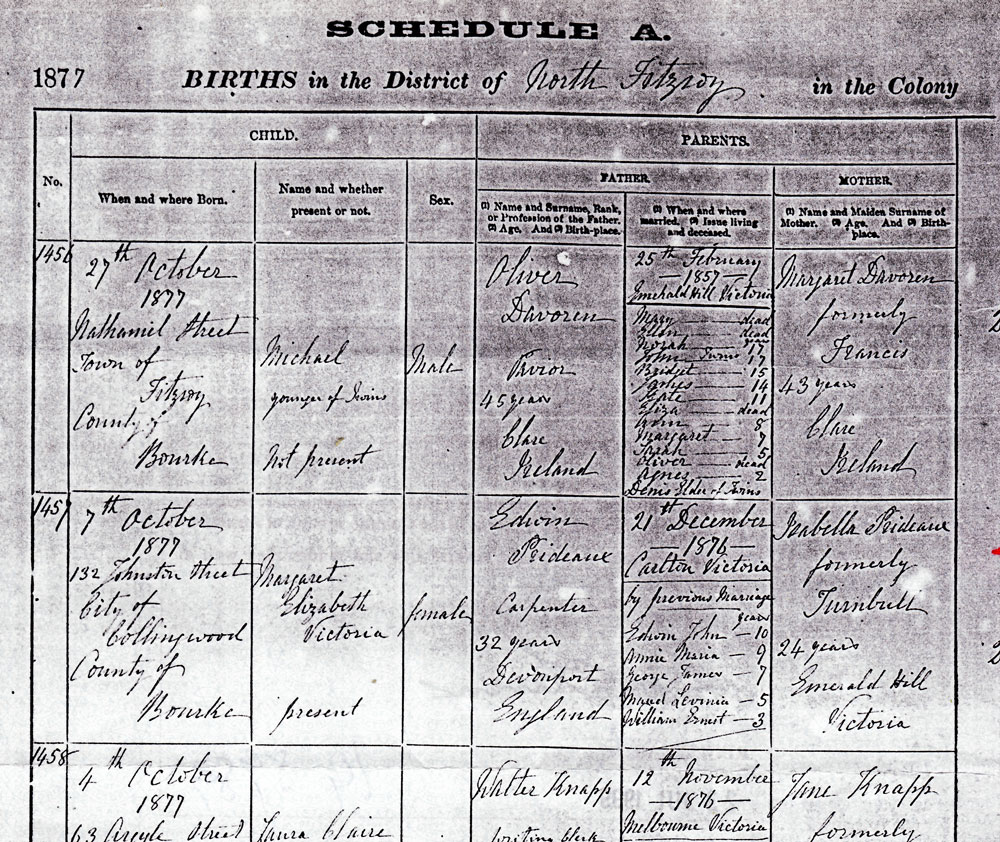 SCHEDULE A.
1877 BIRTHS in the District of North Fitzroy in the Colony
CHILD.
PARENTS.
No.
When and where Born.
Name and whether
present or not.
Sex.
FATHER.
MOTHER.
(1) Name and Surname, Rank,
or Profession of the Father.
(2) Age. And (3) Birth-place.
(1) When and where
married. (2) Issue living
and deceased.
(1) Name and Maiden Surname of
Mother. (2) Age. And (3) Birth-
place.
1456
27th October
1877
Nathaniel Street
Town of
Fitzroy
County of
Bourke
Michael
younger of Twins
Not present
Male
Oliver
Davoren
45 years
Clare
Ireland
25th February
—1857—
Emerald Hill Victoria
Mary — dead
Ellen — dead
years
Norah — 17
John Twins 17
Bridget — 15
James — 14
Kate — 11
Eliza — dead
— 8
Margaret — 7
Sarah — 5
Oliver — dead
Agnes — 2
Denis Elder of Twins
Margaret Davoren
formerly
Francis
43 years
Clare
Ireland
1457
7th October
1877
132 Johnston Street
City of
Collingwood
County of
Bourke
Margaret
Elizabeth
Victoria
present
female
Edwin
Prideaux
Carpenter
32 years
Devonport
England
21st December
—1876—
Carlton Victoria
by previous Marriage
years
Edwin John — 10
Annie Maria — 9
George James — 7
Maud Levinia — 5
William Ernest — 3
Isabella Prideaux
formerly
Turnbull
24 years
Emerald Hill
Victoria
1458
4th October
1877
63 Argyle Street
Laura Claire
Walter Knapp
Writing Clerk
12th November
—1876—
Melbourne Victoria
Jane Knapp
formerly